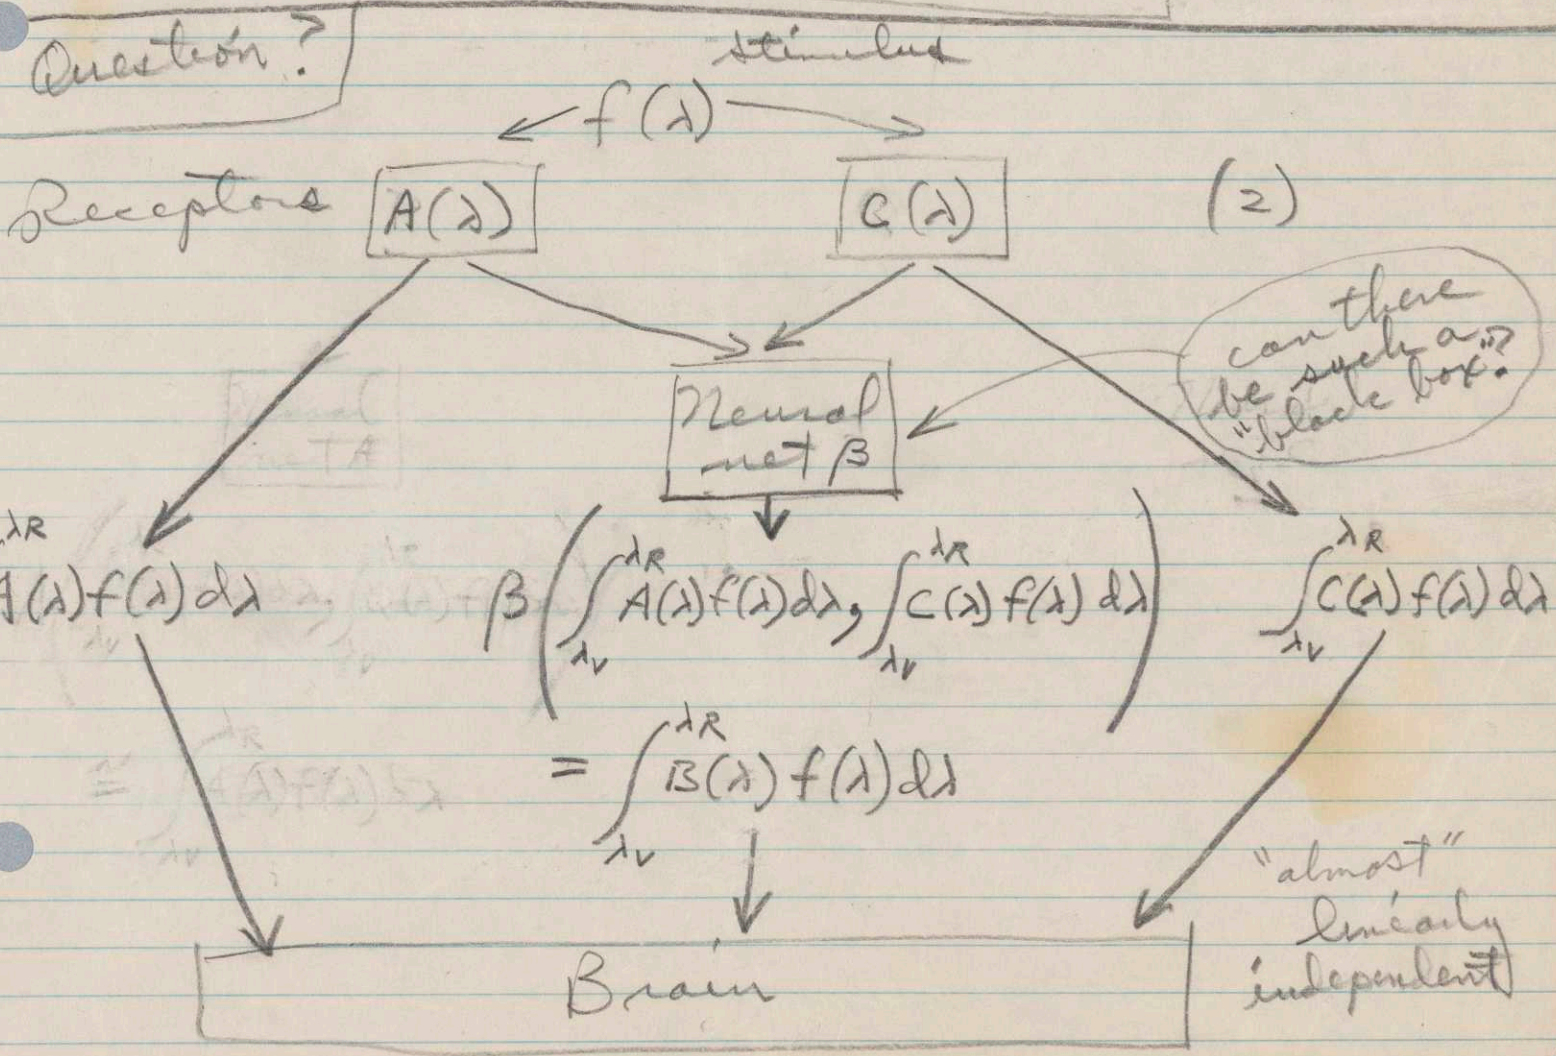 Question?
stimulus
f(λ)
Receptors A(λ) C(λ) (2)
can there
be such a
"black box"?
Neural
net β
λR
A(λ)f(λ)dλ
β(∫ λR λv A(λ)f(λ)dλ, ∫ λR λv C(λ)f(λ)dλ)
∫ λR λv C(λ)f(λ)dλ
= ∫ λR λv B(λ)f(λ)dλ
Brain
"almost"
linearly
independent
Neural
net A
≅ ∫ λR λv A(λ)f(λ)dλ